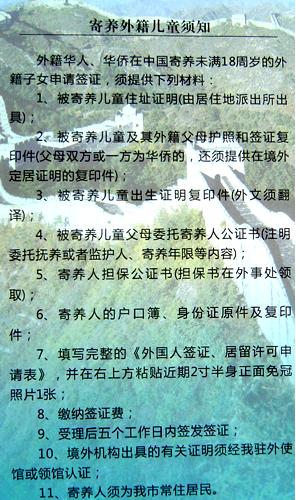 寄养外籍儿童须知
外籍华人、华侨在中国寄养未满18周岁的外
籍子女申请签证，须提供下列材料：
1、被寄养儿童住址证明(由居住地派出所出
具)；
2、被寄养儿童及其外籍父母护照和签证复
印件(父母双方或一方为华侨的，还须提供在境外
定居证明的复印件)；
3、被寄养儿童出生证明复印件(外文须翻
译)；
4、被寄养儿童父母委托寄养人公证书(注明
委托抚养或者监护人、寄养年限等内容)；
5、寄养人担保公证书(担保书在外事处领
取)；
6、寄养人的户口簿、身份证原件及复印
件；
7、填写完整的《外国人签证、居留许可申
请表》，并在右上方粘贴近期2寸半身正面免冠
照片1张；
8、缴纳签证费；
9、受理后五个工作日内签发签证；
10、境外机构出具的有关证明须经我驻外使
馆或领馆认证；
11、寄养人须为我市常住居民。